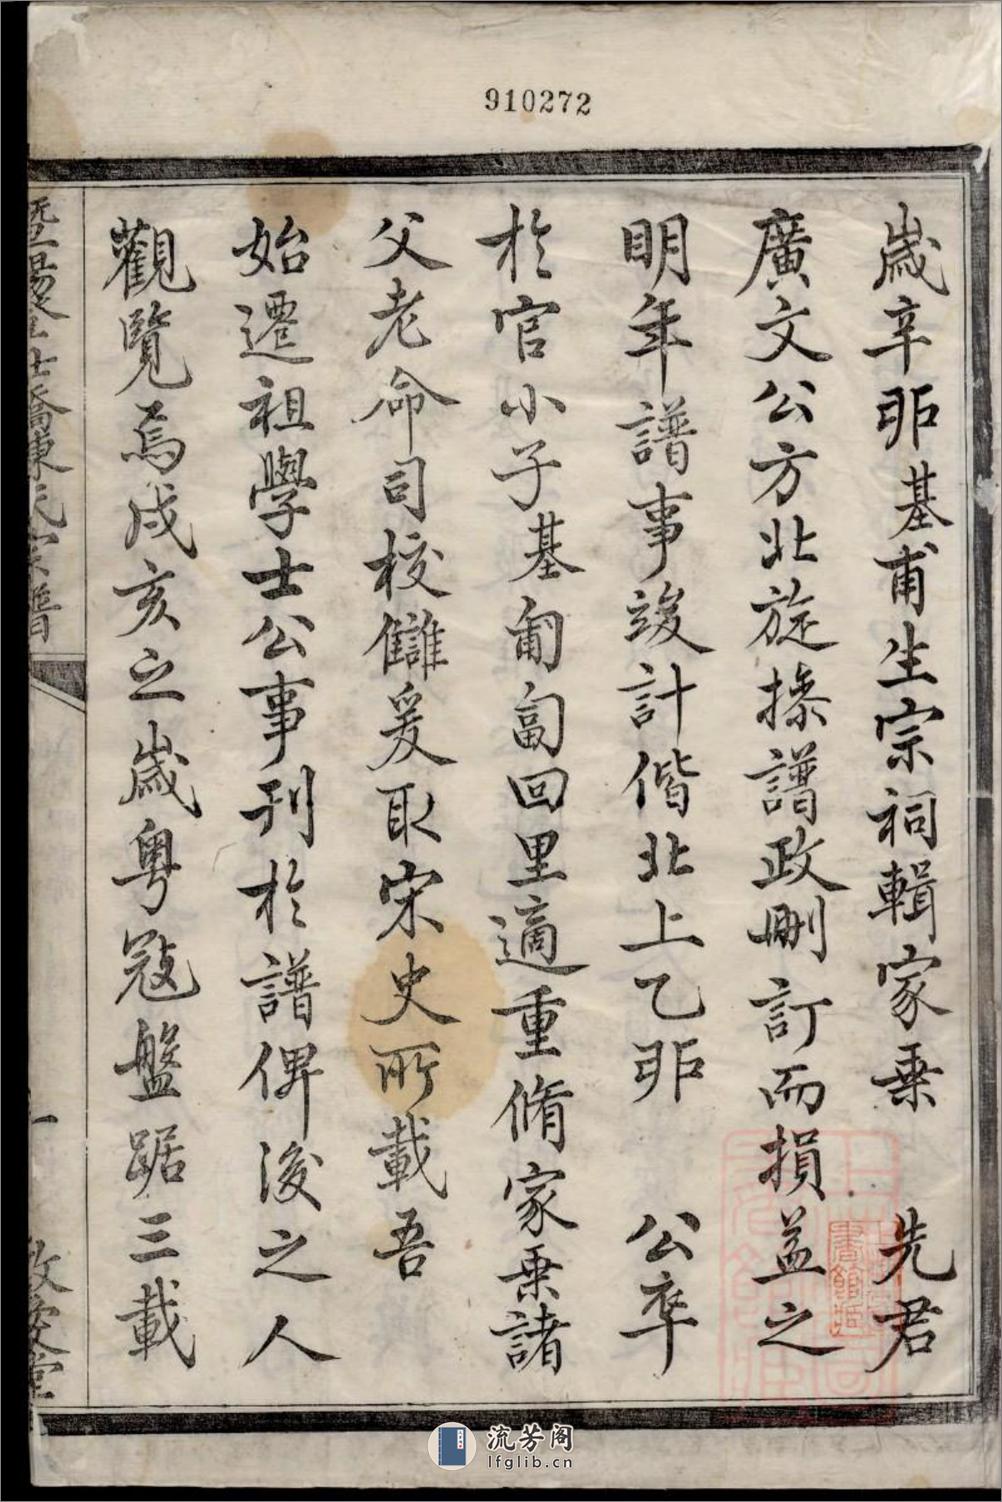 910272
歲辛丣基甫生宗祠輯家乗　先君
廣文公方北旋操譜政刪訂而損益之
明年譜事竣計偕北上乙丣　公卒
於官小子基匍匐回里適重脩家乗諸
父老命司校讎爰取宋史所載吾
始遷祖學士公事刊於譜俾後之人
觀覽焉戌亥之歲粤寇盤踞三載
暨陽學士橋東氏家譜
一
流芳阁
lfglib.cn